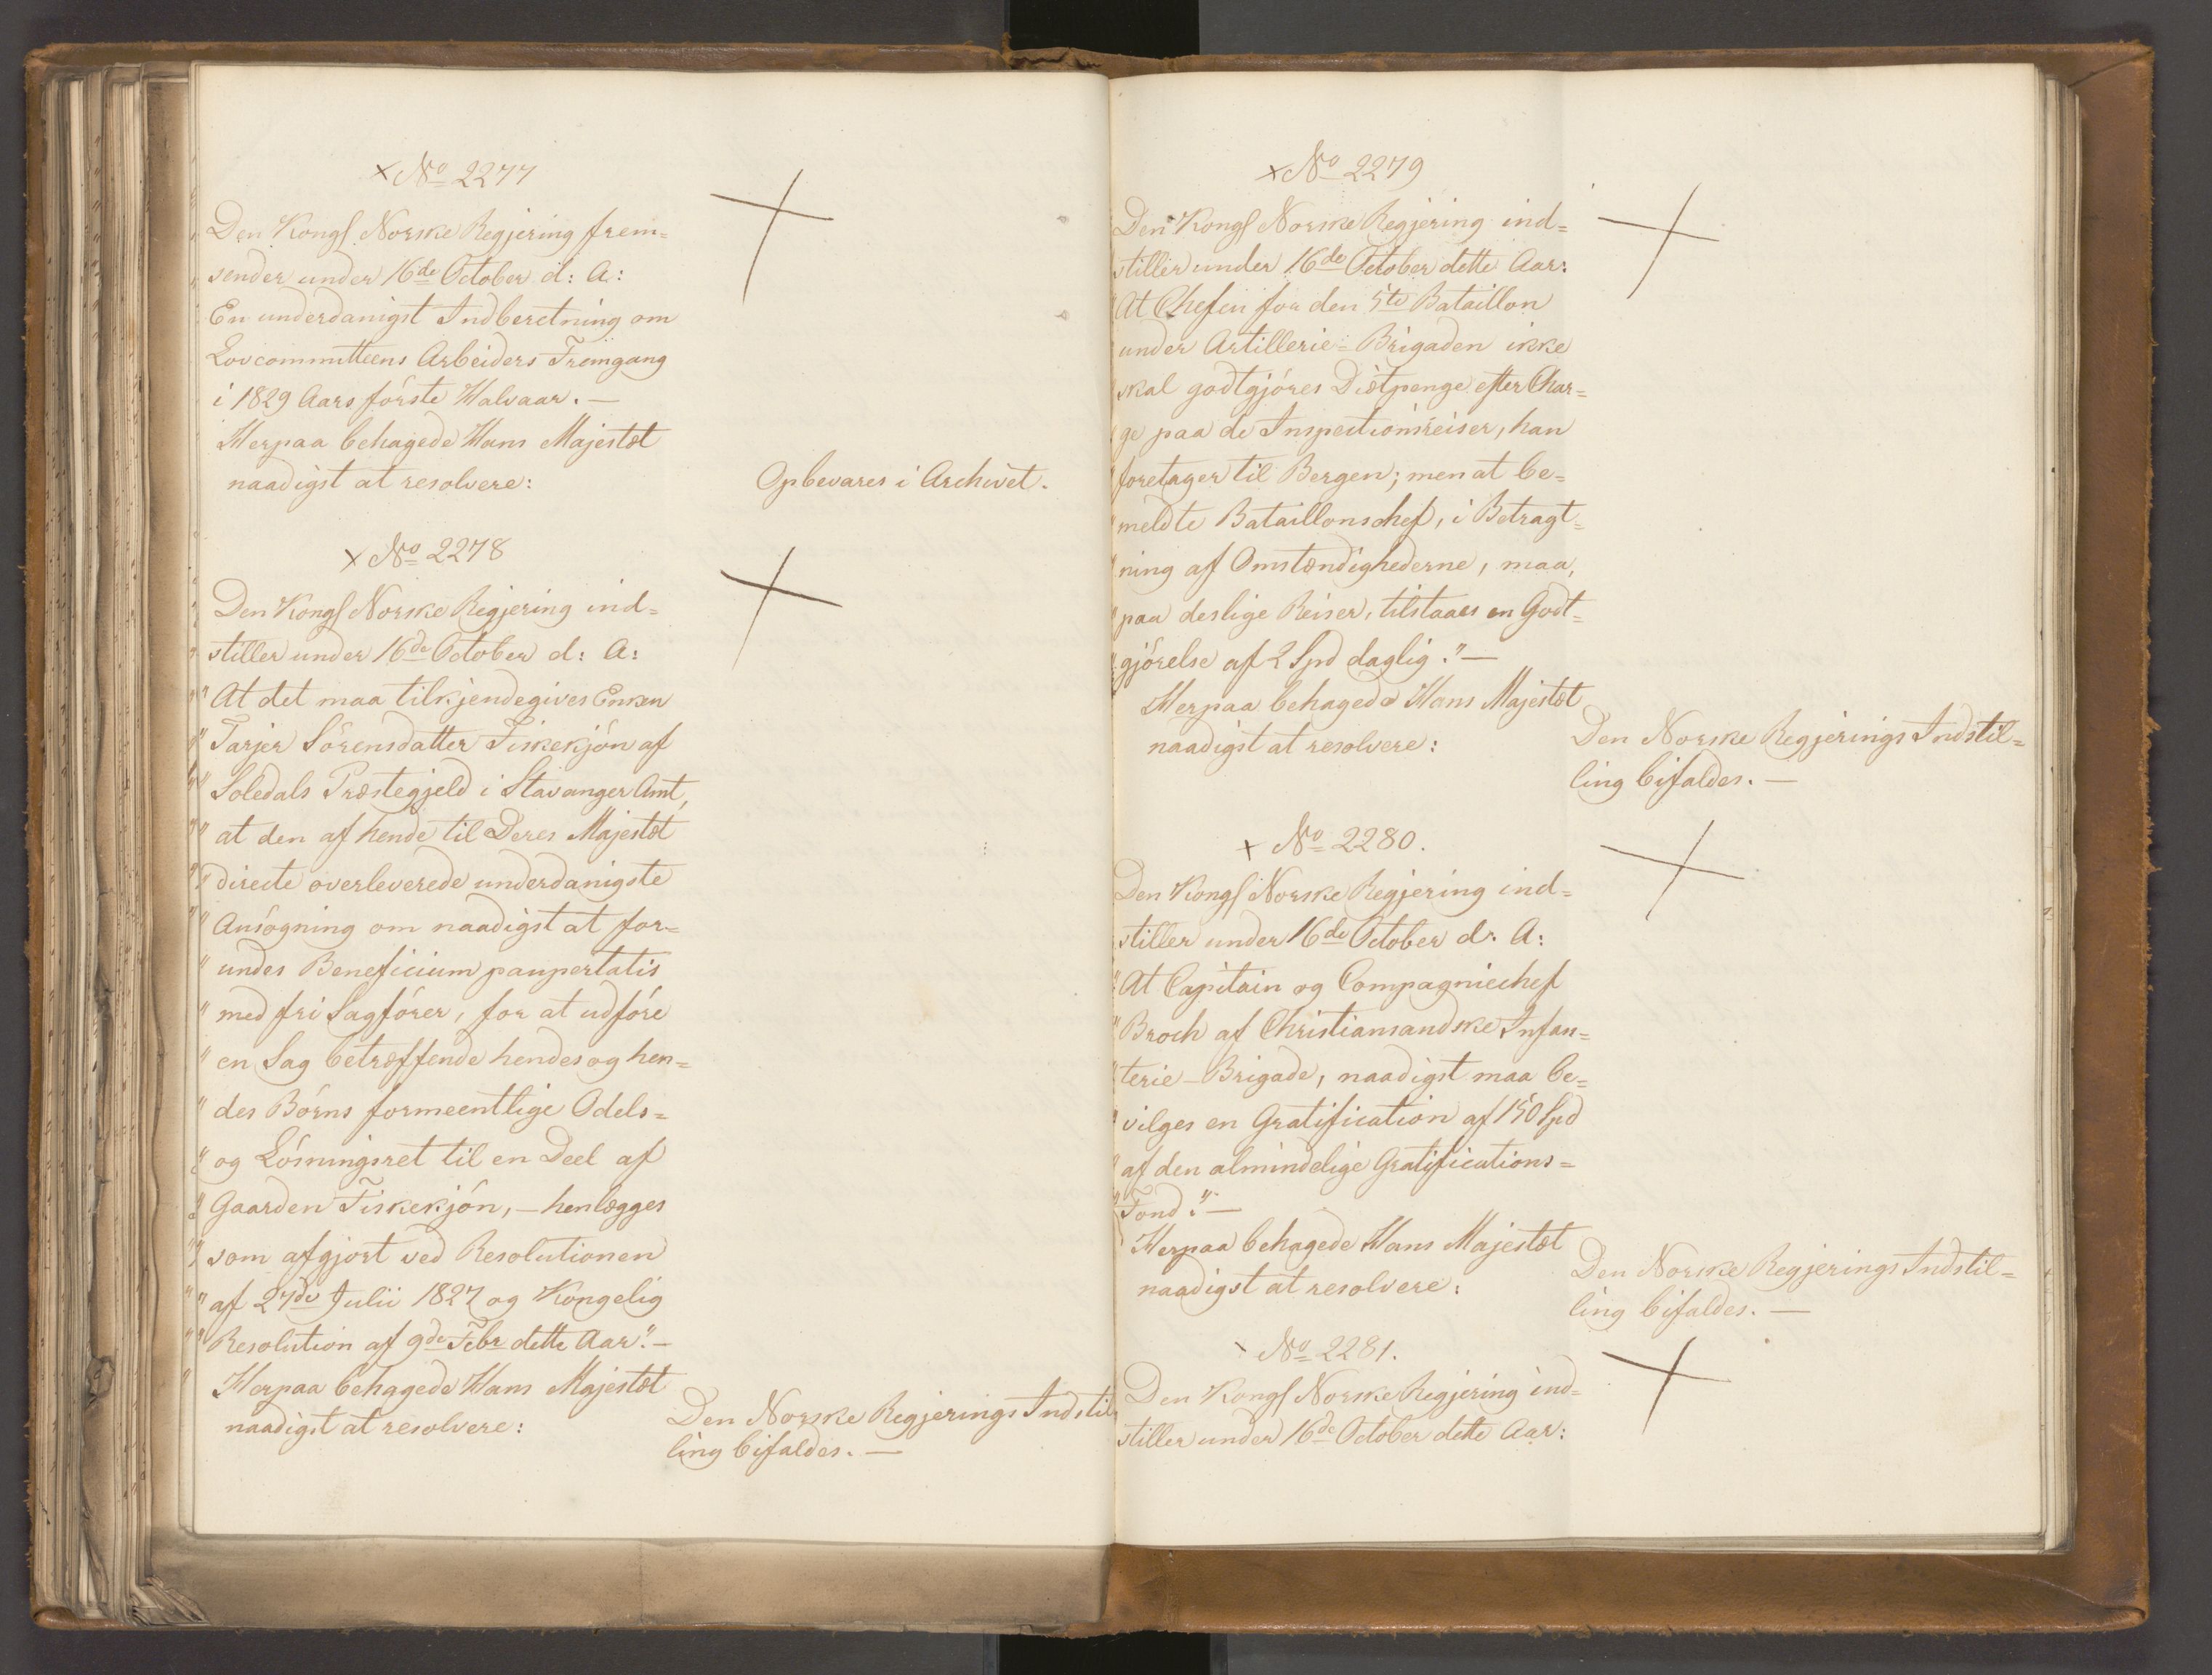 × No 2277
Den Kongl Norske Regjering frem=
sender under 16de October d: A:
En underdanigst Indberetning om
Lovcommitteens Arbeiders Fremgang
i 1829 Aars förste Halvaar. —
Herpaa behagede Hans Majestæt
naadigst at resolvere:
Opbevares i Archivet.
× No 2278
Den Kongl Norske Regjering ind=
stiller under 16de October d: A:
"At det maa tilkjendegives Enken
"Tarjer Sörensdatter Fiskekjön af
"Soledals Præstegjeld i Stavanger Amt,
"at den af hende til Deres Majestæt
"directe overleverede underdanigste
"Ansögning om naadigst at for=
"undes Beneficium paupertatis
"med fri Sagförer, for at udföre
"en Sag betræffende hendes og hen=
"des Börns formeentlige Odels=
"og Lösningsret til en Deel af
"Gaarden Fiskekjön, — henlægges
"som afgjort ved Resolutionen
"af 27de Julii 1827 og Kongelig
"Resolution af 9de Febr dette Aar." —
Herpaa behagede Hans Majestæt
naadigst at resolvere:
Den Norske Regjerings Indstil=
ling bifaldes. —
× No 2279
Den Kongl Norske Regjering ind=
stiller under 16de October dette Aar:
"At Chefen for den 5te Bataillon
"under Artillerie=Brigaden ikke
"skal godtgjöres Diætpenge efter Char=
"ge paa de Inspectionsreiser, han
"foretager til Bergen; men at be=
"meldte Bataillonschef, i Betragt=
"ning af Omstændighederne, maa,
"paa deslige Reiser, tilstaaes en Godt=
"gjörelse af 2 Spd daglig." —
Herpaa behagede Hans Majestæt
naadigst at resolvere:
Den Norske Regjerings Indstil=
ling bifaldes. —
× No 2280.
Den Kongl Norske Regjering ind=
stiller under 16de October d. A:
"At Capitain og Compagniechef
"Broch af Christiansandske Infan=
"terie-Brigade, naadigst maa be=
"vilges en Gratification af 150 Spd
"af den almindelige Gratifications=
"Fond." —
Herpaa behagede Hans Majestæt
naadigst at resolvere:
Den Norske Regjerings Indstil=
ling bifaldes. —
× No 2281.
Den Kongl Norske Regjering ind=
stiller under 16de October dette Aar: